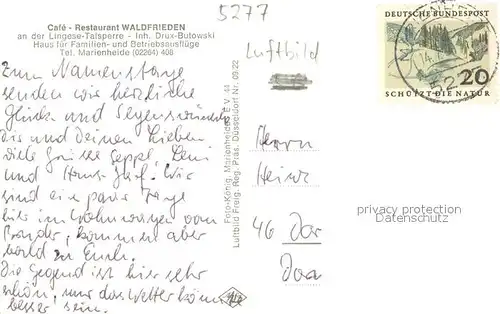 5277
Café - Restaurant WALDFRIEDEN
an der Lingese-Talsperre - Inh. Drux-Butowski
Haus für Familien- und Betriebsausflüge
Tel. Marienheide (02264) 408
Zum Namenstage
senden wir herzliche
Glück und Segenswünsche
Dis und Deinen Lieben
viele Grüße Seppel, Leni
und Hans-Josef. Wir
sind ein paar Tage
hier im Wohnwagen vom
Bruder, kommen aber
bald zu Euch.
Die Gegend ist hier sehr
schön, nur das Wetter könnte
besser sein.
Foto-König, Marienheide
Luftbild Freig. Reg. Präs. Düsseldorf Nr. 09.22 E.V. 44
Luftbild
DEUTSCHE BUNDESPOST
20
SCHÜTZT DIE NATUR
Herrn
Heinz
46 Dor
privacy protection
Datenschutz